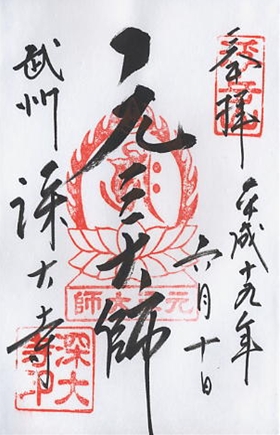 奉拝
平成十九年
六月十日
元三大師
武州
深大寺
元三大師
深大寺印